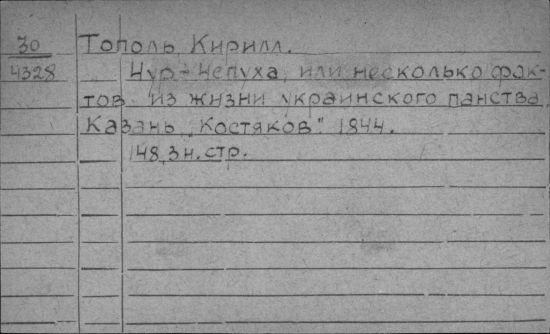 30 Тополь Кирилл.
4328 Чур-Чепуха, или несколько фак-
тов из жизни украинского панства
Казань „Костяков". 1844.
148, 3 н. стр.